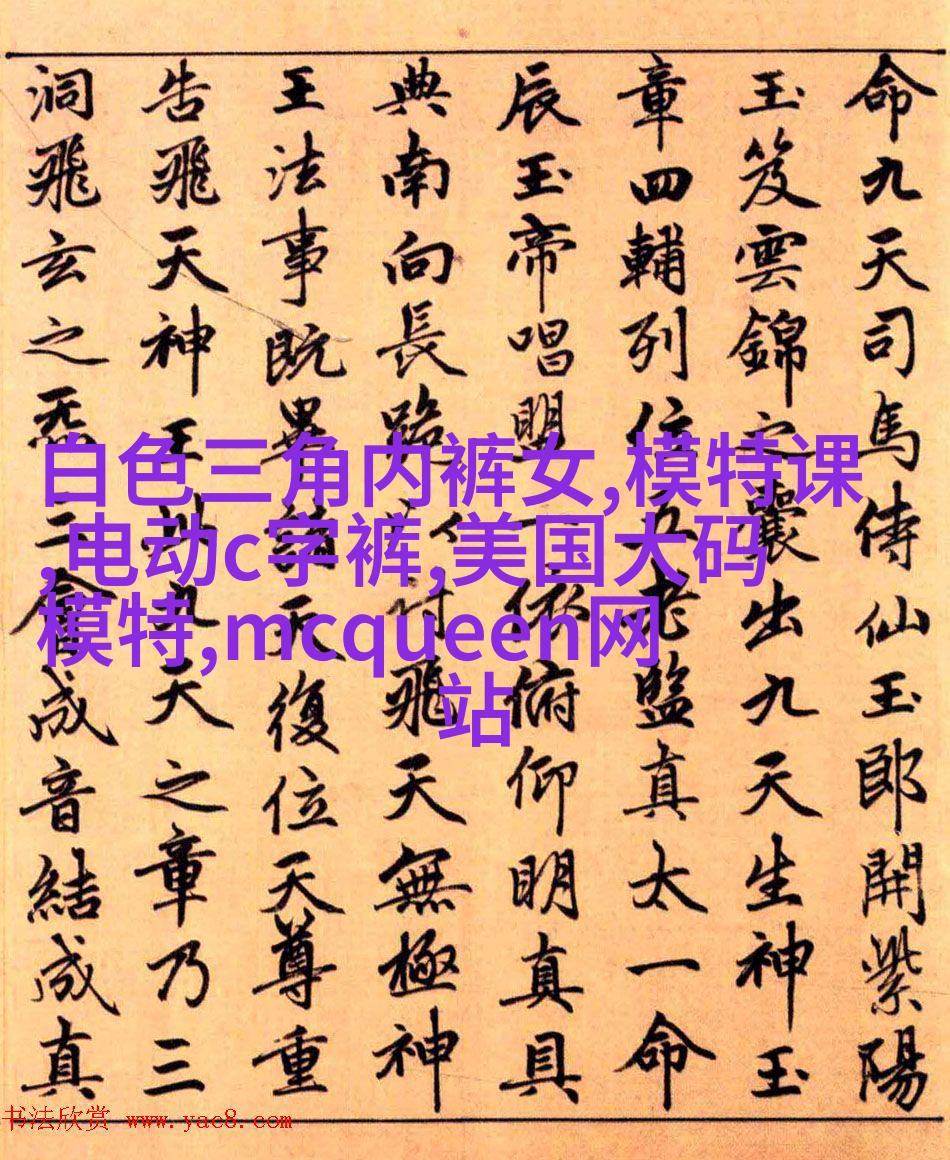 命九天司馬侍仙玉郎開紫陽
玉笈雲錦之囊出九天生神玉
章四輔列位五老監真太一命
辰玉帝唱盟一依俯仰明真具
典南向長跪付飛天無極神
王法事既畢諸天復位天尊重
告飛天神王此九天之章乃三
洞飛玄之炁三合成音結成真
白色三角内裤女,模特课
,电动c字裤,美国大码
模特,mcqueen网
站
书法欣赏 www.yac8.com